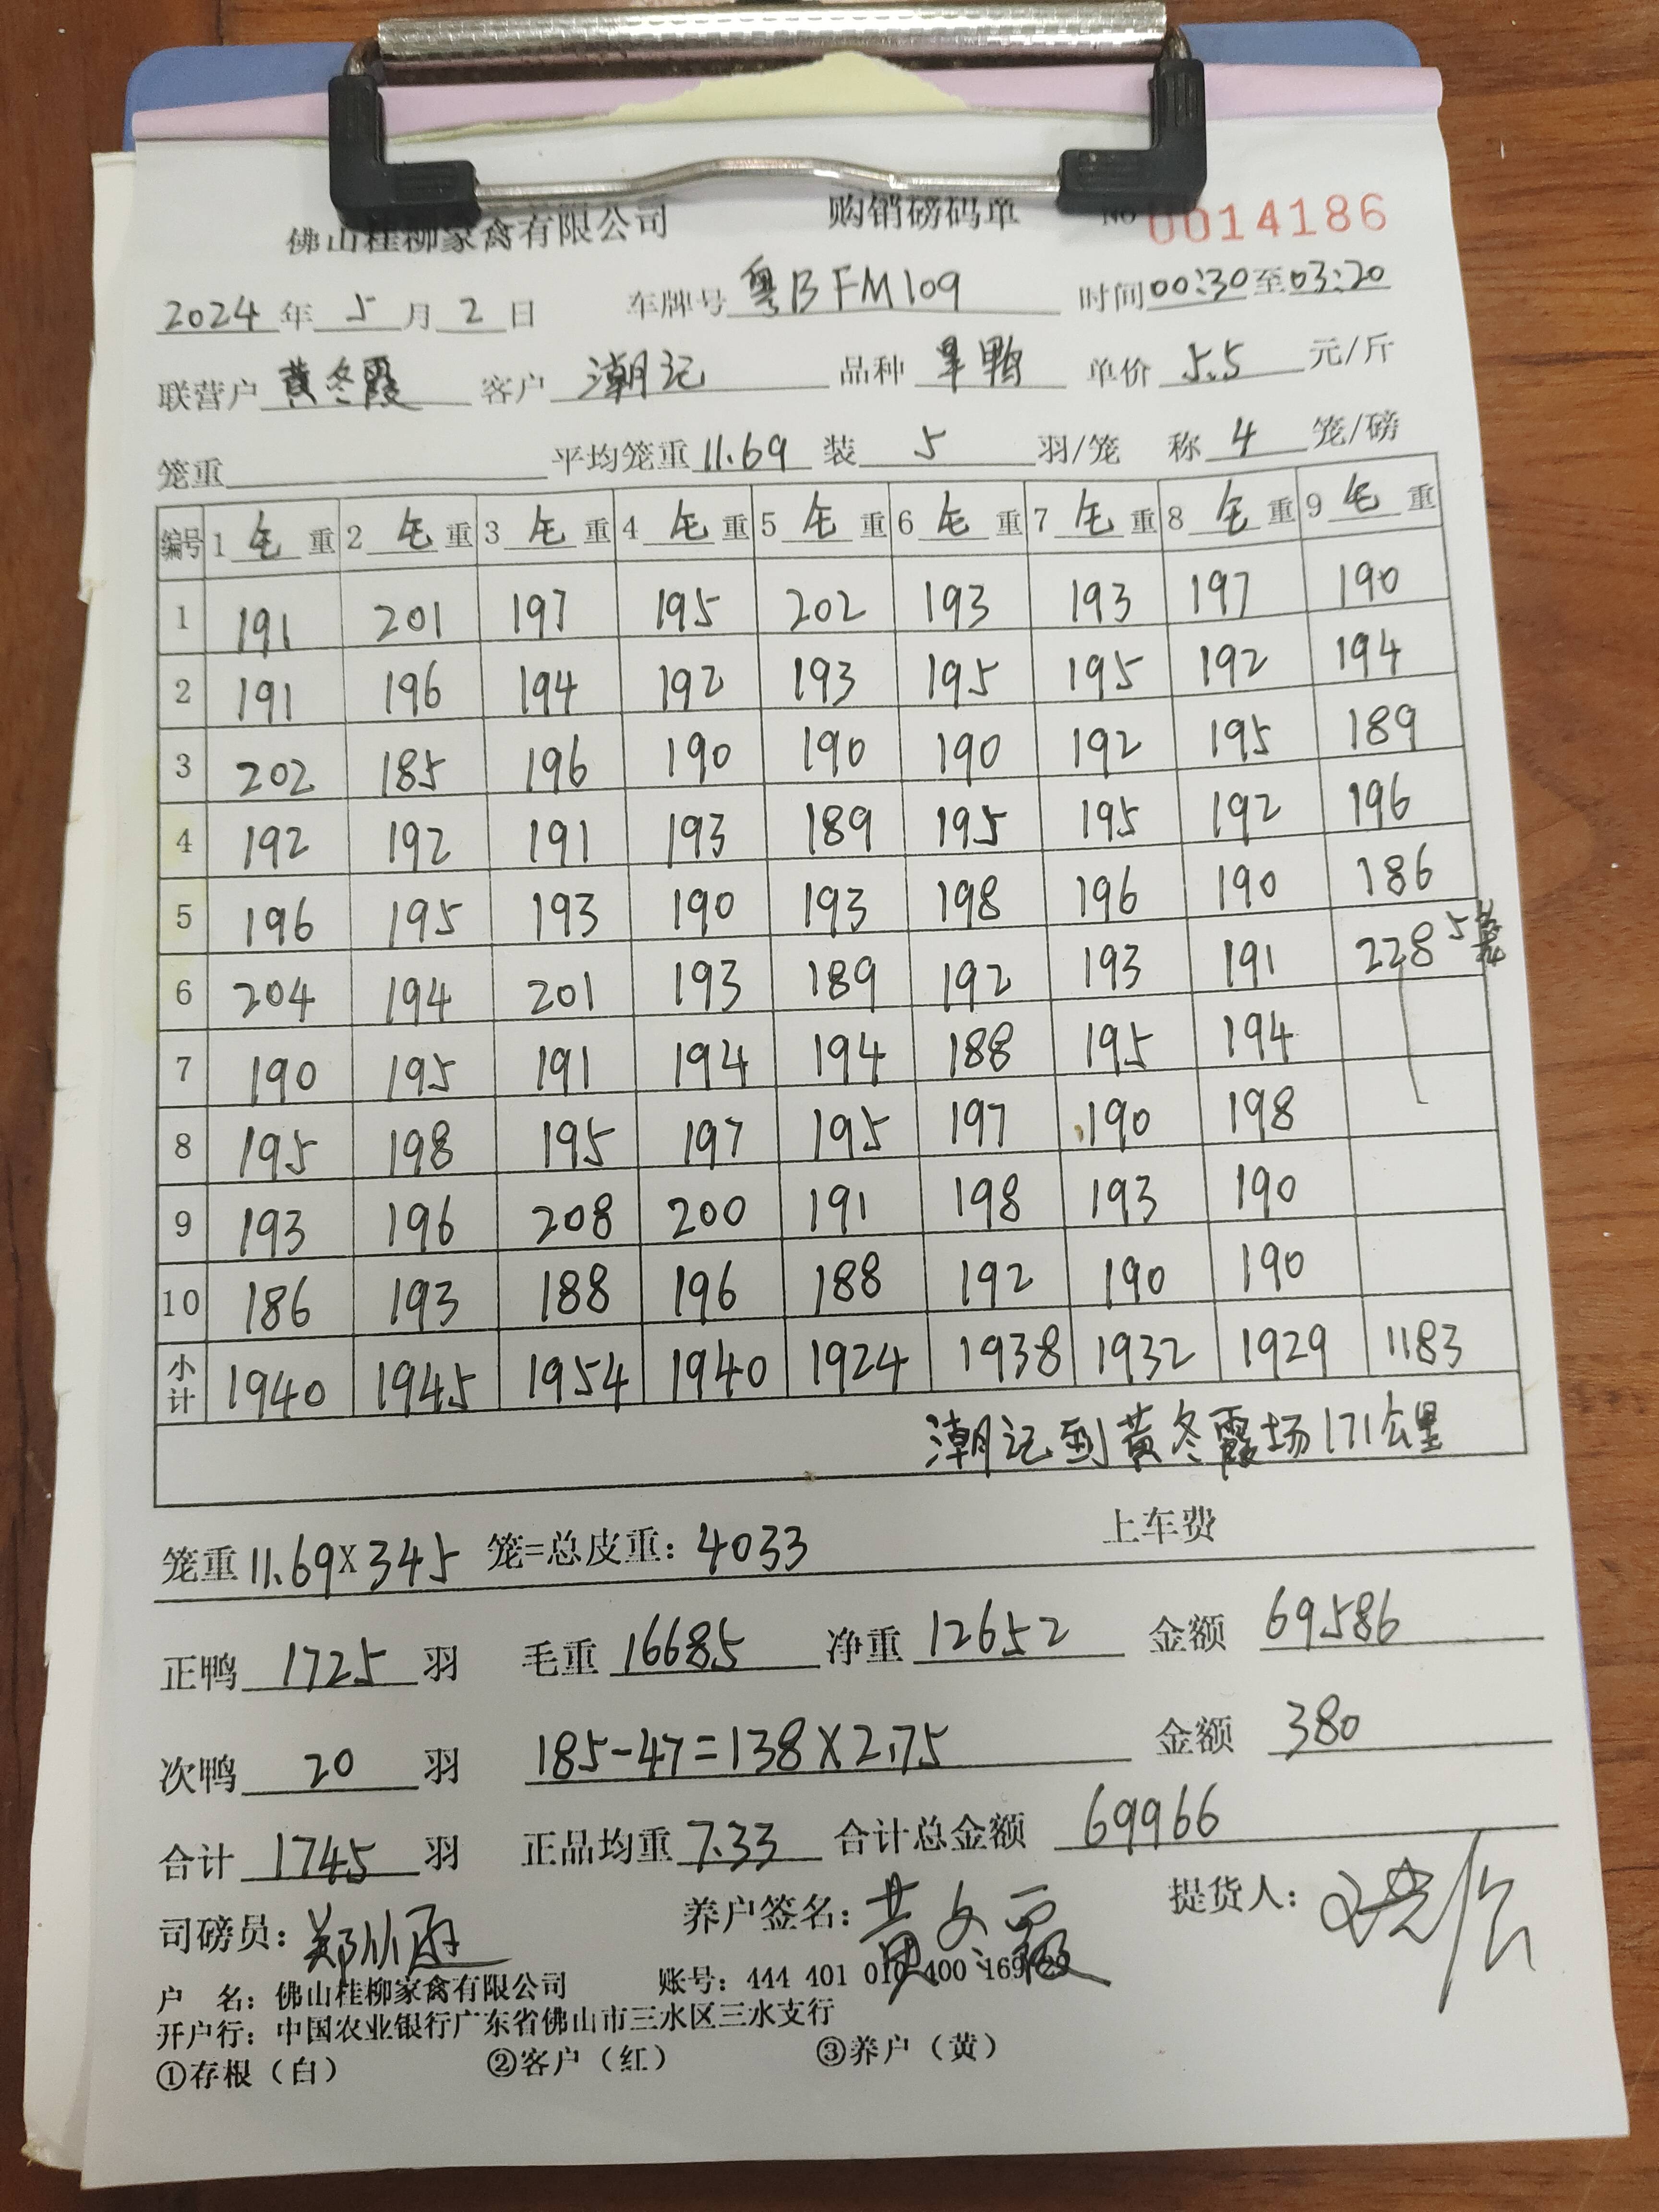 佛山桂柳家禽有限公司 购销磅码单 No 0014186
2024年5月2日 车牌号粤BFM109 时间00:30至03:20
联营户黄冬霞 客户潮记 品种旱鸭 单价5.5元/斤
笼重 平均笼重11.69 装5羽/笼 称4笼/磅
编号 1毛重 2毛重 3毛重 4毛重 5毛重 6毛重 7毛重 8毛重 9毛重
1 191 201 197 195 202 193 193 197 190
2 191 196 194 192 193 195 195 192 194
3 202 185 196 190 190 190 192 195 189
4 192 192 191 193 189 195 195 192 196
5 196 195 193 190 193 198 196 190 186
6 204 194 201 193 189 192 193 191 228 5笼
7 190 195 191 194 194 188 195 194
8 195 198 195 197 195 197 190 198
9 193 196 208 200 191 198 193 190
10 186 193 188 196 188 192 190 190
小计 1940 1945 1954 1940 1924 1938 1932 1929 1183
潮记到黄冬霞场171公里
笼重11.69X345笼=总皮重:4033 上车费
正鸭1725羽 毛重16685 净重12652 金额69586
次鸭20羽 185-47=138X2.75 金额380
合计1745羽 正品均重7.33 合计总金额69966
司磅员: 养户签名:黄冬霞 提货人:
户 名:佛山桂柳家禽有限公司 账号:444 401 010 400 169
开户行:中国农业银行广东省佛山市三水区三水支行
①存根(白) ②客户(红) ③养户(黄)